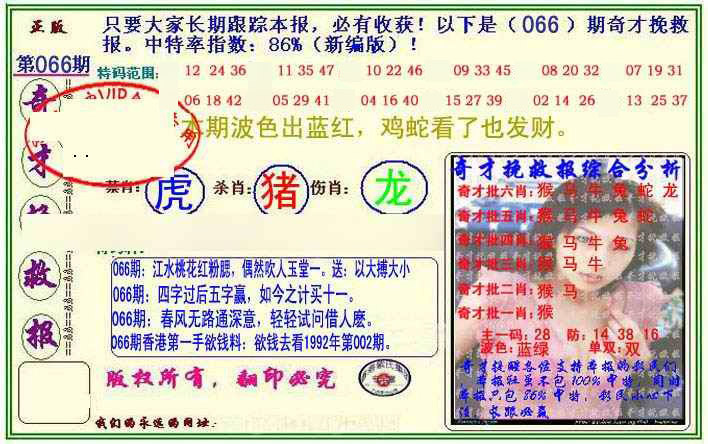 正版
只要大家长期跟踪本报，必有收获！以下是（066）期奇才挽救
报。中特率指数：86%（新编版）！
第066期
特码范围：
12 24 36 11 35 47 10 22 46 09 33 45 08 20 32 07 19 31
06 18 42 05 29 41 04 16 40 15 27 39 02 14 26 13 25 37
VIP
本期波色出蓝红，鸡蛇看了也发财。
奇
才
救
报
禁肖：虎 杀肖：猪 伤肖：龙
066期：江水桃花红粉腮，偶然吹人玉堂一。送：以大搏大小
066期：四字过后五字赢，如今之计买十一。
066期：春风无路通深意，轻轻试问借人麽。
066期香港第一手欲钱料：欲钱去看1992年第002期。
版权所有，翻印必究
我们的永远的网址：
奇才挽救报综合分析
奇才批六肖：猴 马 牛 兔 蛇 龙
奇才批五肖：猴 马 牛 兔 蛇
奇才批四肖：猴 马 牛 兔
奇才批三肖：猴 马 牛
奇才批二肖：猴 马
奇才批一肖：猴
主一码：28 防：14 38 16
波色：蓝绿 单双：双
奇才提醒各位支持本报的彩民们
本报驻虽不包100%中特，同时
本报只包86%中特，彩民小心下
注，长跟必赢